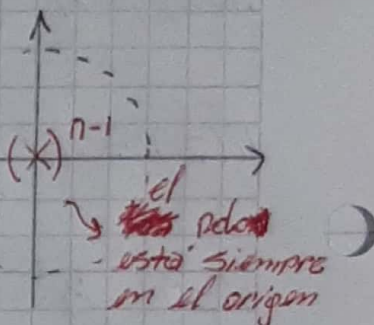 (×) n-1
el
polo
está siempre
en el origen